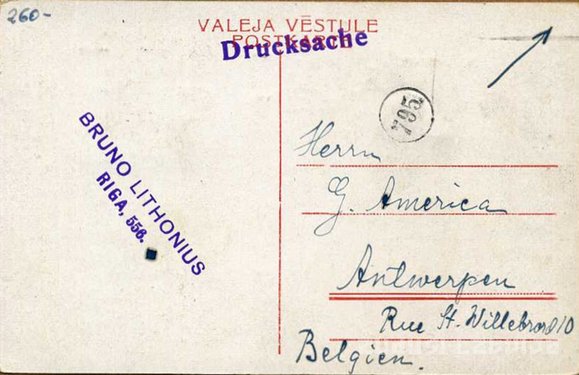 260-
VALEJA VĒSTULE
POSTKARTE
Drucksache
795
BRUNO LITHONIUS
RIGA, 556.
Herrn
G. America
Antwerpen
Rue St. Willebrord 10
Belgien.